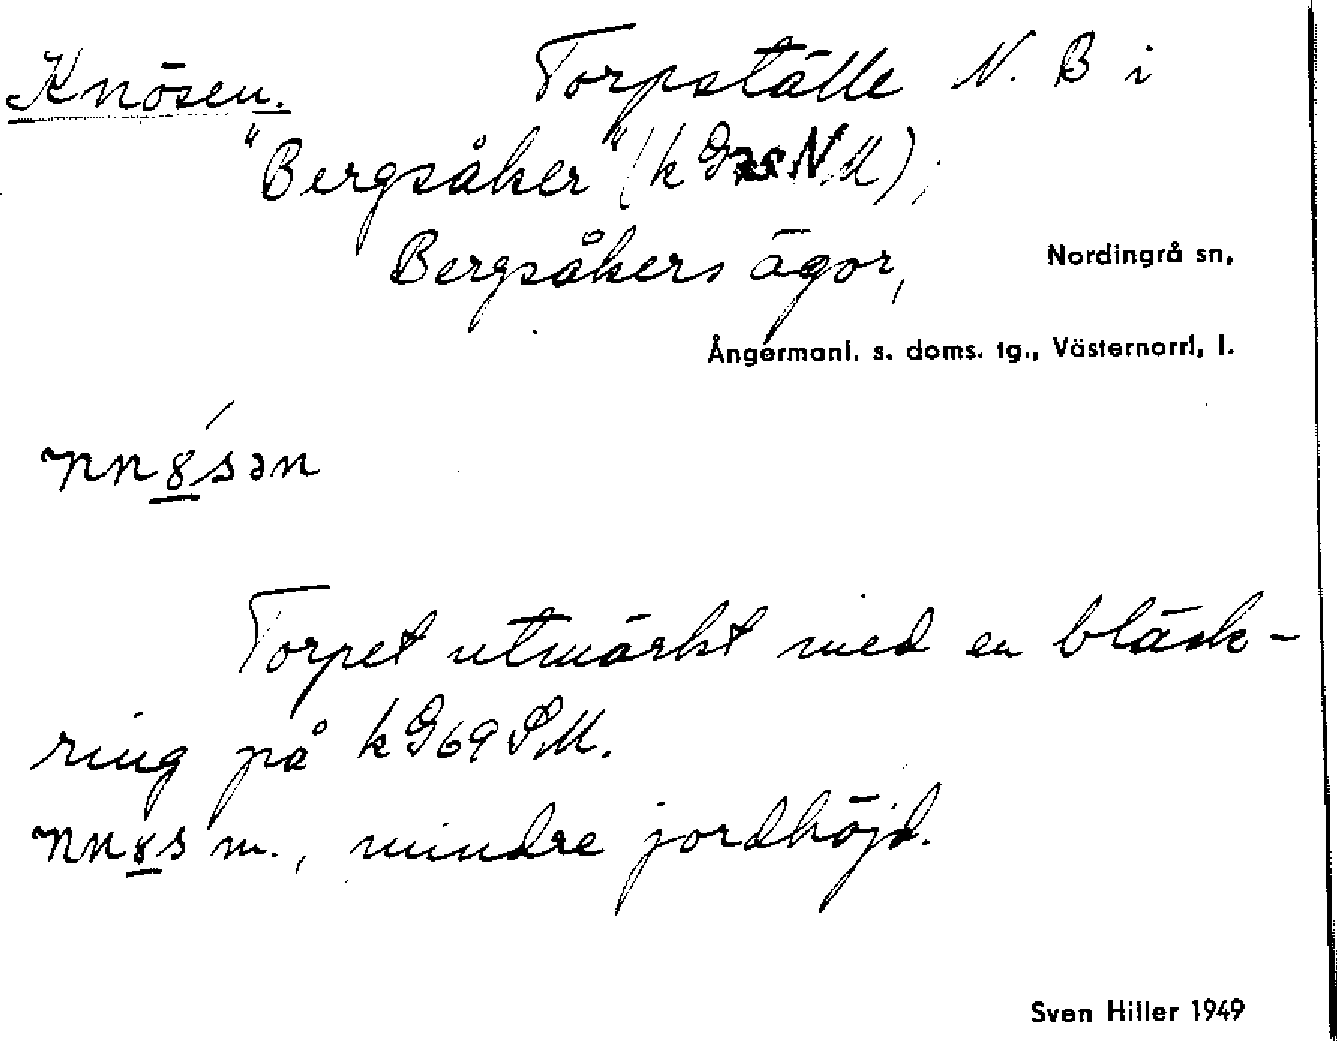 Knösen. Torpställe N. B i
"Bergsåker" (k G N.M);
Bergsåkers ägor, Nordingrå sn,
Ångermanl. s. doms. tg., Västernorrl. l.
Torpet utmärkt med en bläck-
ring på k G69 S.M.
m., mindre jordhöjd.
Sven Hiller 1949